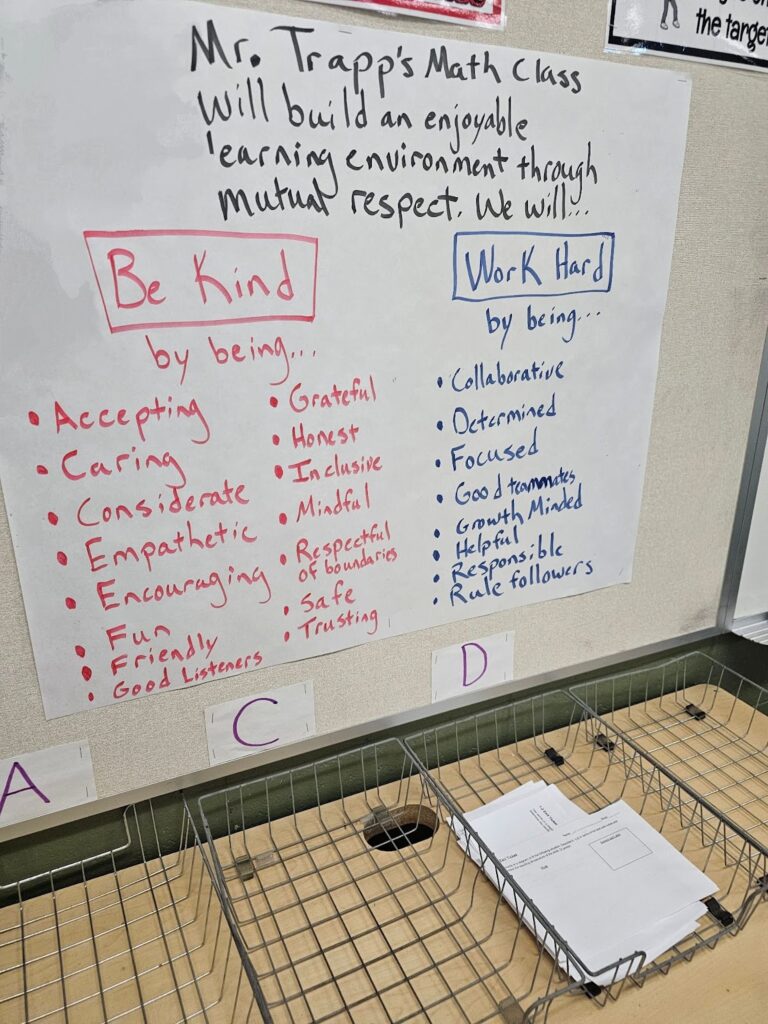 the target
Mr. Trapp's Math Class
Will build an enjoyable
learning environment through
mutual respect. We will...
Be Kind
by being...
• Accepting
• Caring
• Considerate
• Empathetic
• Encouraging
• Fun
• Friendly
• Good Listeners
• Grateful
• Honest
• Inclusive
• Mindful
• Respectful
of boundaries
• Safe
• Trusting
Work Hard
by being...
• Collaborative
• Determined
• Focused
• Good teammates
• Growth Minded
• Helpful
• Responsible
• Rule followers
A
C
D